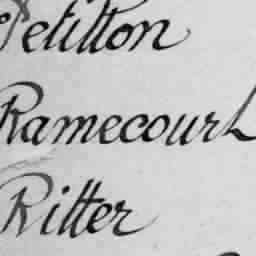 Petitton
Ramecourt
Ritter